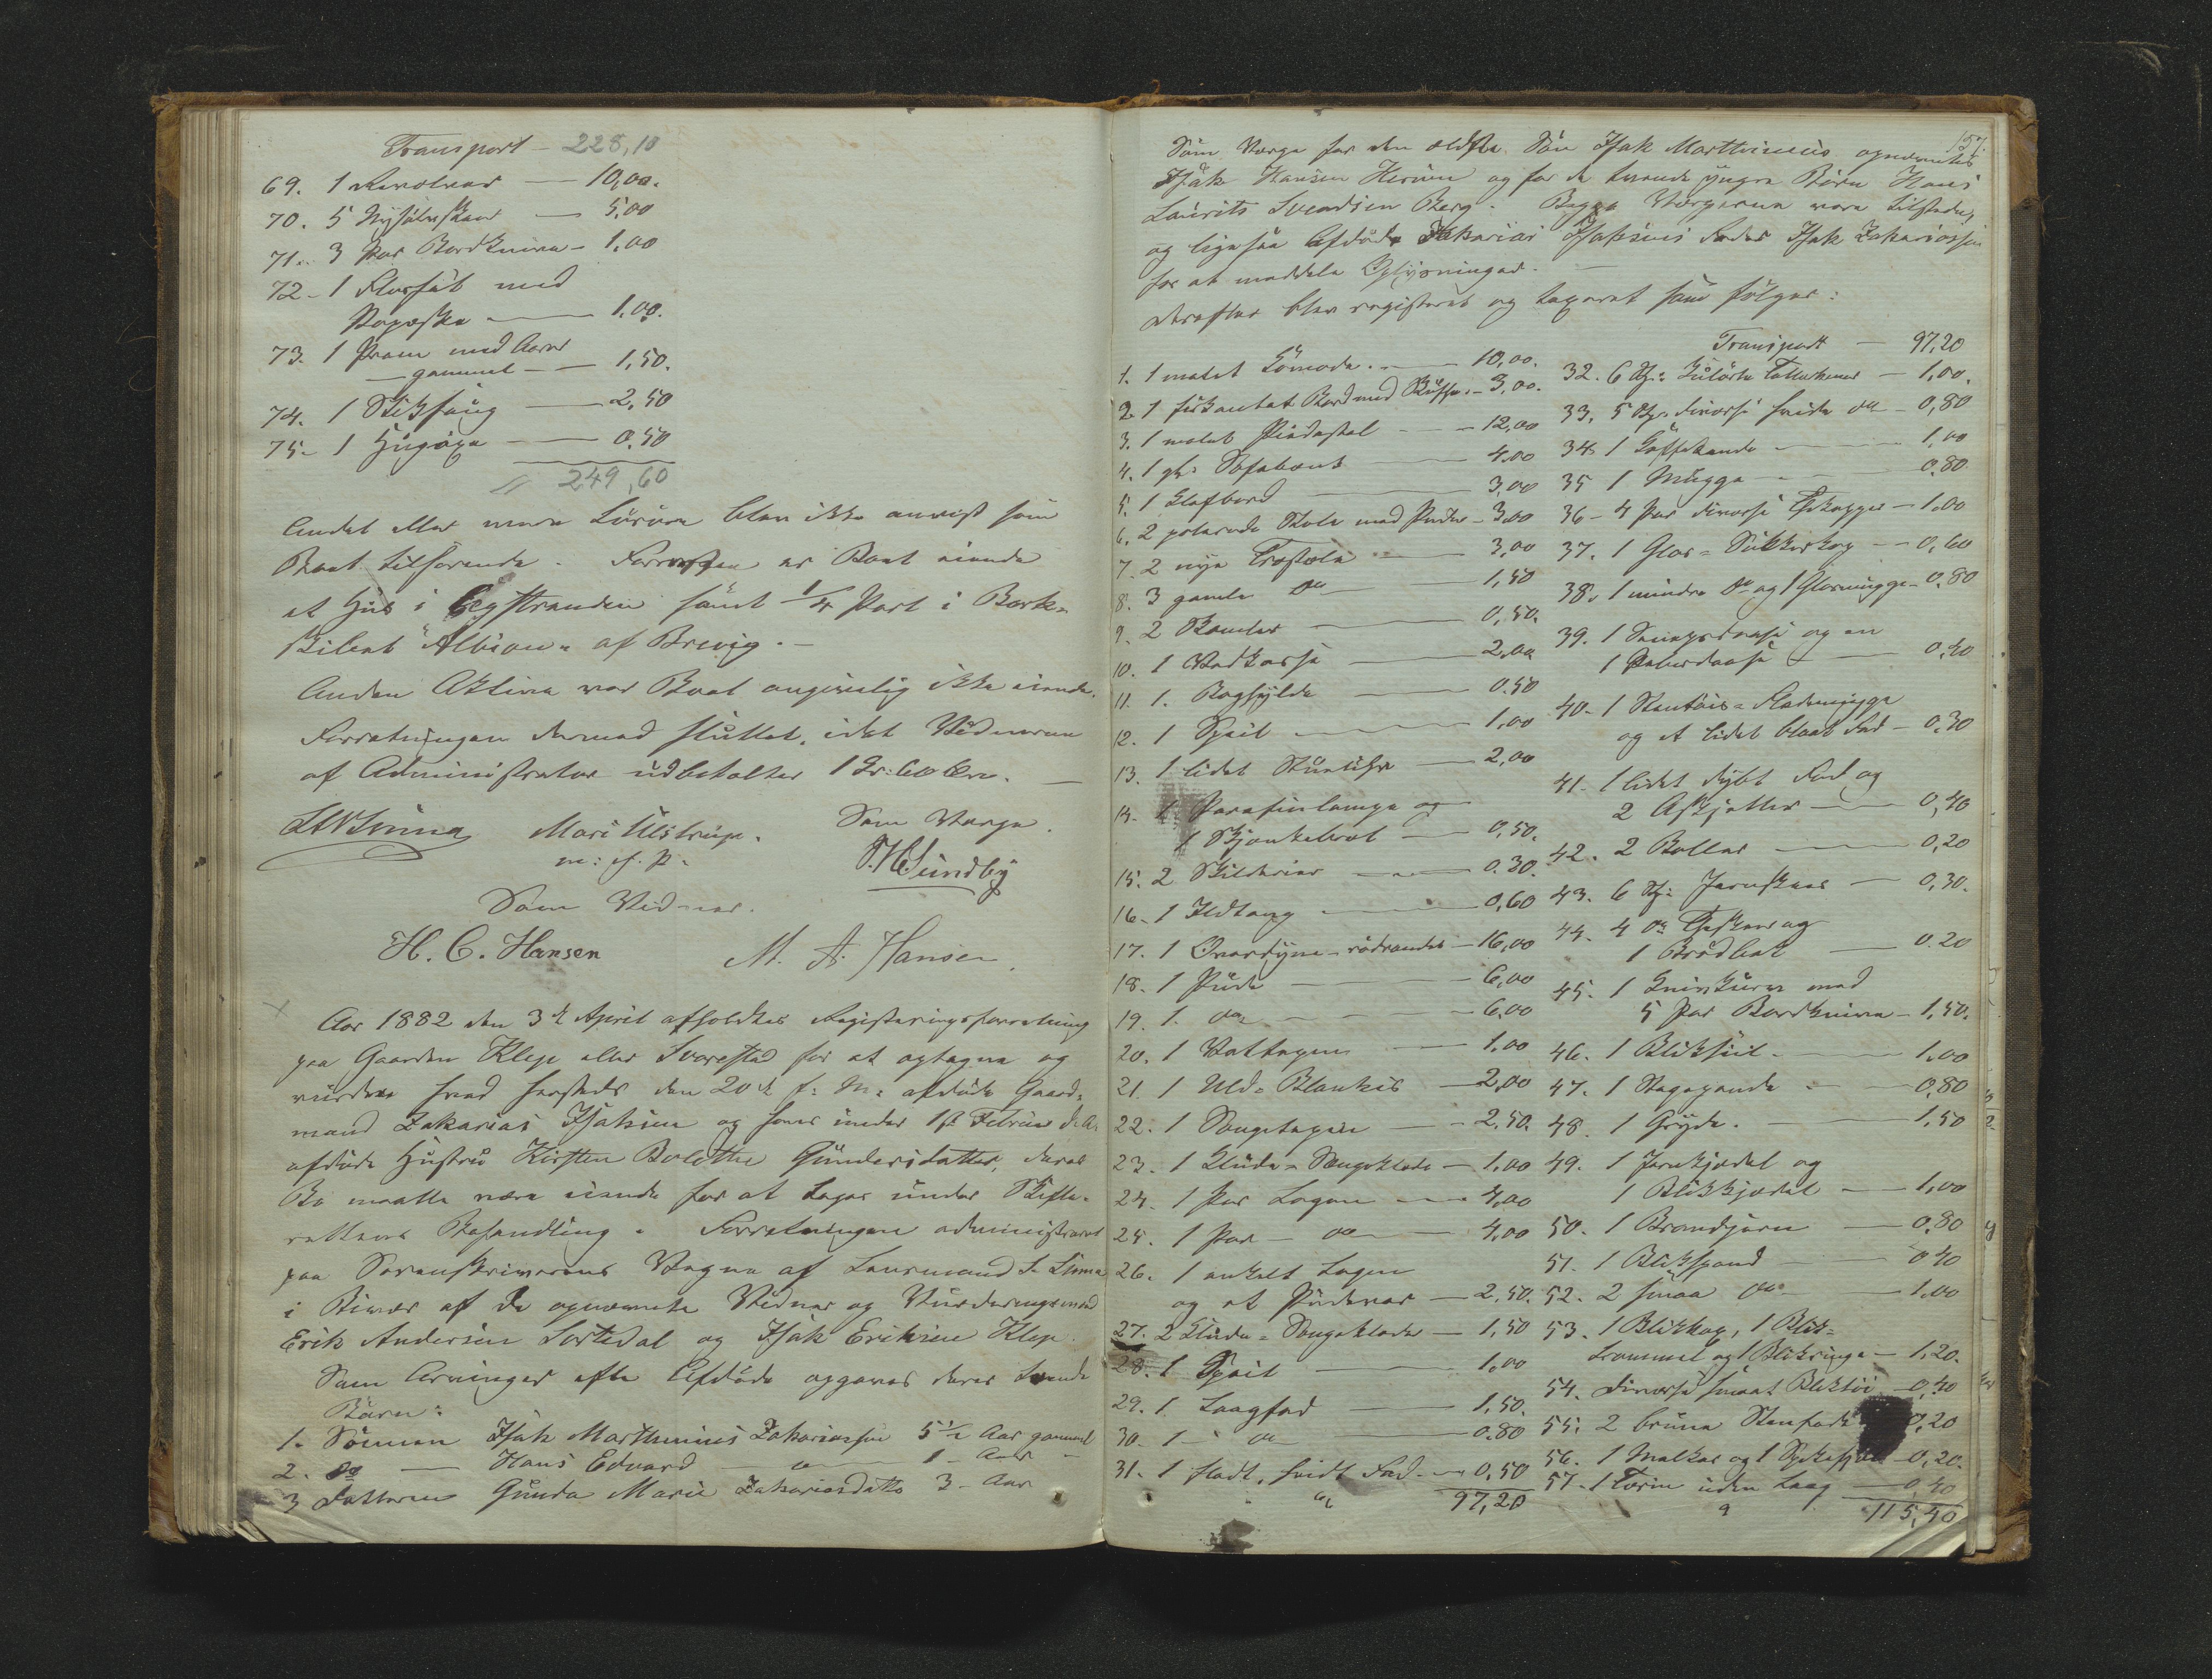 Transport - 228,10
69. 1 Revolver — 10,00.
70. 5 Nysølvskeer — 5,00
71. 3 Par Bordknive - 1,00
72 - 1 Glasfad med
Papæske — 1,00.
73. 1 Pram med Aarer
— gammel — 1,50.
74. 1 Stiksaug — 2,50
75 - 1 Hugøxe — 0,50
249,60
Andet eller mere Løsøre blev ikke anvist som
Boet tilhørende. Forresten er Boet eiende
et Huus i Langestranden samt 1/4 Part i Bark-
skibet "Albion" af Brevig. -
Anden Aktiva var Boet angivelig ikke eiende.
Forretningen dermed sluttet, idet Vidnerne
af Administrator udbetaltes 1 Kr: 60 Øre. —
Mari Ulstrup.
m: f. P.
Som Værge.
T. H. Sundby
Som Vidner.
H. C. Hansen
M. A. Hansen.
Aar 1882 den 3de April afholdtes Registeringsforretning
paa Gaarden Klep eller Svarestad for at optegne og
vurdere hvad hersteds den 20de f: M: afdøde Gaard-
mand Zakarias Isaksen og hans under 1ste Februar d. A.
afdøde Hustru Kirsten Bolethe Gundersdatter, deres
Bo maatte være eiende for at tages under Skifte-
rettens Behandling. Forretningen administreret
paa Sorenskriverens Vegne af Lensmand S. Linna
i Biværs af de opnævnte Vidner og Vurderingsmænd
Erik Andersen Sortedal og Isak Eriksen Klep.
Som Arvinger efter Afdøde opgaves deres tvende
Børn:
1. Sønnen Isak Marthinius Zakariassen 5 1/2 Aar gammel
2. do — Hans Edvard — " — 1 - Aar -
3 Datteren Gunda Marie Zakariasdatter 3 - Aar
157.
Som Værge for den ældste Søn Isak Marthinius opnævntes
Isak Hansen Herum og for de tvende yngre Børn Hans
Laurits Svendsen Berg. Begge Værgerne vare tilstede,
og ligesaa Afdøde Zakarias Isaksens Fader Isak Zakariassen
for at meddele Oplysninger. —
Derefter blev registeret og taxeret som følger:
1. 1 malet Comode. — 10,00.
2. 1 firkantet Bord med Skuffe. - 3,00.
3. 1 malet Piedestal — 12,00
4. 1 gl: Sofabænk — 4,00
5. 1 Klafbord — 3,00
6. 2 polerede Stole med Puder - 3,00
7. 2 nye Træstole — 3,00
8. 3 gamle do — 1,50
9. 2 Rammer — 0,50.
10. 1 Vedkasse — 2,00
11. 1. Boghylde — 0.50
12. 1 Speil — 1,00
13. 1 lidet Stueuhr — 2,00
14. 1 Parafinlampe og
1 Skjænkebræt — 0,50.
15. 2 Skilderier — 0.30.
16. 1 Ildtang — 0,60
17. 1 Overdyne - rødrandet - 16,00
18. 1 Pude — 6,00
19. 1. do — 6,00
20. 1 Vattæppe — 1,00
21. 1 Uld-Blankis — 2,00
22. 1 Sengetæppe — 2,50.
23. 1 Klude-Sengeklæde — 1,00
24. 1 Par Lagen — 4,00
25. 1 Par - do — 4,00
26. 1 enkelt Lagen
og et Pudevar — 2,50.
27. 2 Klude-Sengeklæder — 1,50
28. 1 Speil — 1,00
29. 1. Laagfad — 1,50.
30. 1 — do — 0.80
31. 1 fladt, hvidt Fad — 0,50
97,20
Transport — 97,20
32. 6 St: kulørte Tallerkener — 1,00.
33. 5 St: diverse hvide do — 0,80
34. 1 Kaffekande — 1,00
35 1 Mugge — 0.80
36 - 4 Par diverse Thekopper — 1,00
37. 1 Glas-Sukkerkop — 0,60
38. 1 mindre do og 1 Glasmugge - 0,80
39. 1 Senepsdaase og en
1 Peberdaase — 0,40
40 - 1 Stentøis-Flødemugge
og et lidet blaat Fad — 0,30
41 - 1 lidet dybt Fad og
2 Askjetter — 0,40
42. 2 Boller — 0,20
43. 6 St: Jernskeer — 0,30.
44. 4 do Theskeer og
1 Brødbræt — 0.20
45. 1 Knivkurv med
5 Par Bordknive — 1,50.
46. 1 Bliksiil — 1,00
47. 1 Stegepande — 0,80
48. 1 Gryde. — 1,50
49. 1 Jernkjedel og
1 Blikkjedel — 1,00
50. 1 Brændejern — 0,80
51. 1 Blikspand — 0 40
52. 2 smaa do — 1,00
53. 1 Blikkop, 1 Blik-
trommel og 1 Blikringe — 1,20.
54. diverse smaat Bliktøi - 0,40
55. 2 brune Stenfade 0,20
56. 1 Malkar og 1 — 0,20.
57 - 1 Terin uden Laag — 0,40
115,40